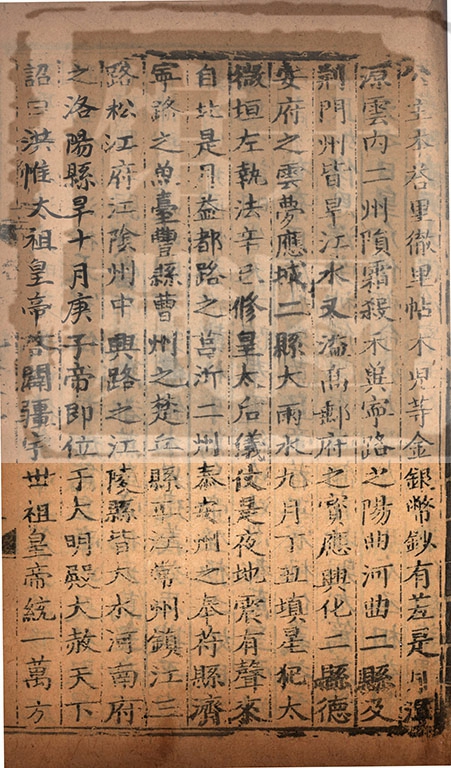 公主本荅里徹里帖木児等金銀幣鈔有差是月潭
源雲内二州隕霜殺禾冀寜路之陽曲河曲二縣及
荆門州皆旱江水又溢髙郵府之寳應興化二縣德
安府之雲夢應城二縣大雨水九月丁丑填星犯太
微垣左執法辛巳修皇太后儀仗是夜地震有聲来
自北是月益都路之莒沂二州泰安州之奉符縣濟
寜路之魚臺豐縣曹州之楚丘縣平江常州鎮江三
路松江府江隂州中興路之江陵縣皆大水河南府
之洛陽縣旱十月庚子帝即位于大明殿大赦天下
詔曰洪惟太祖皇帝啓闢疆宇世祖皇帝統一萬方